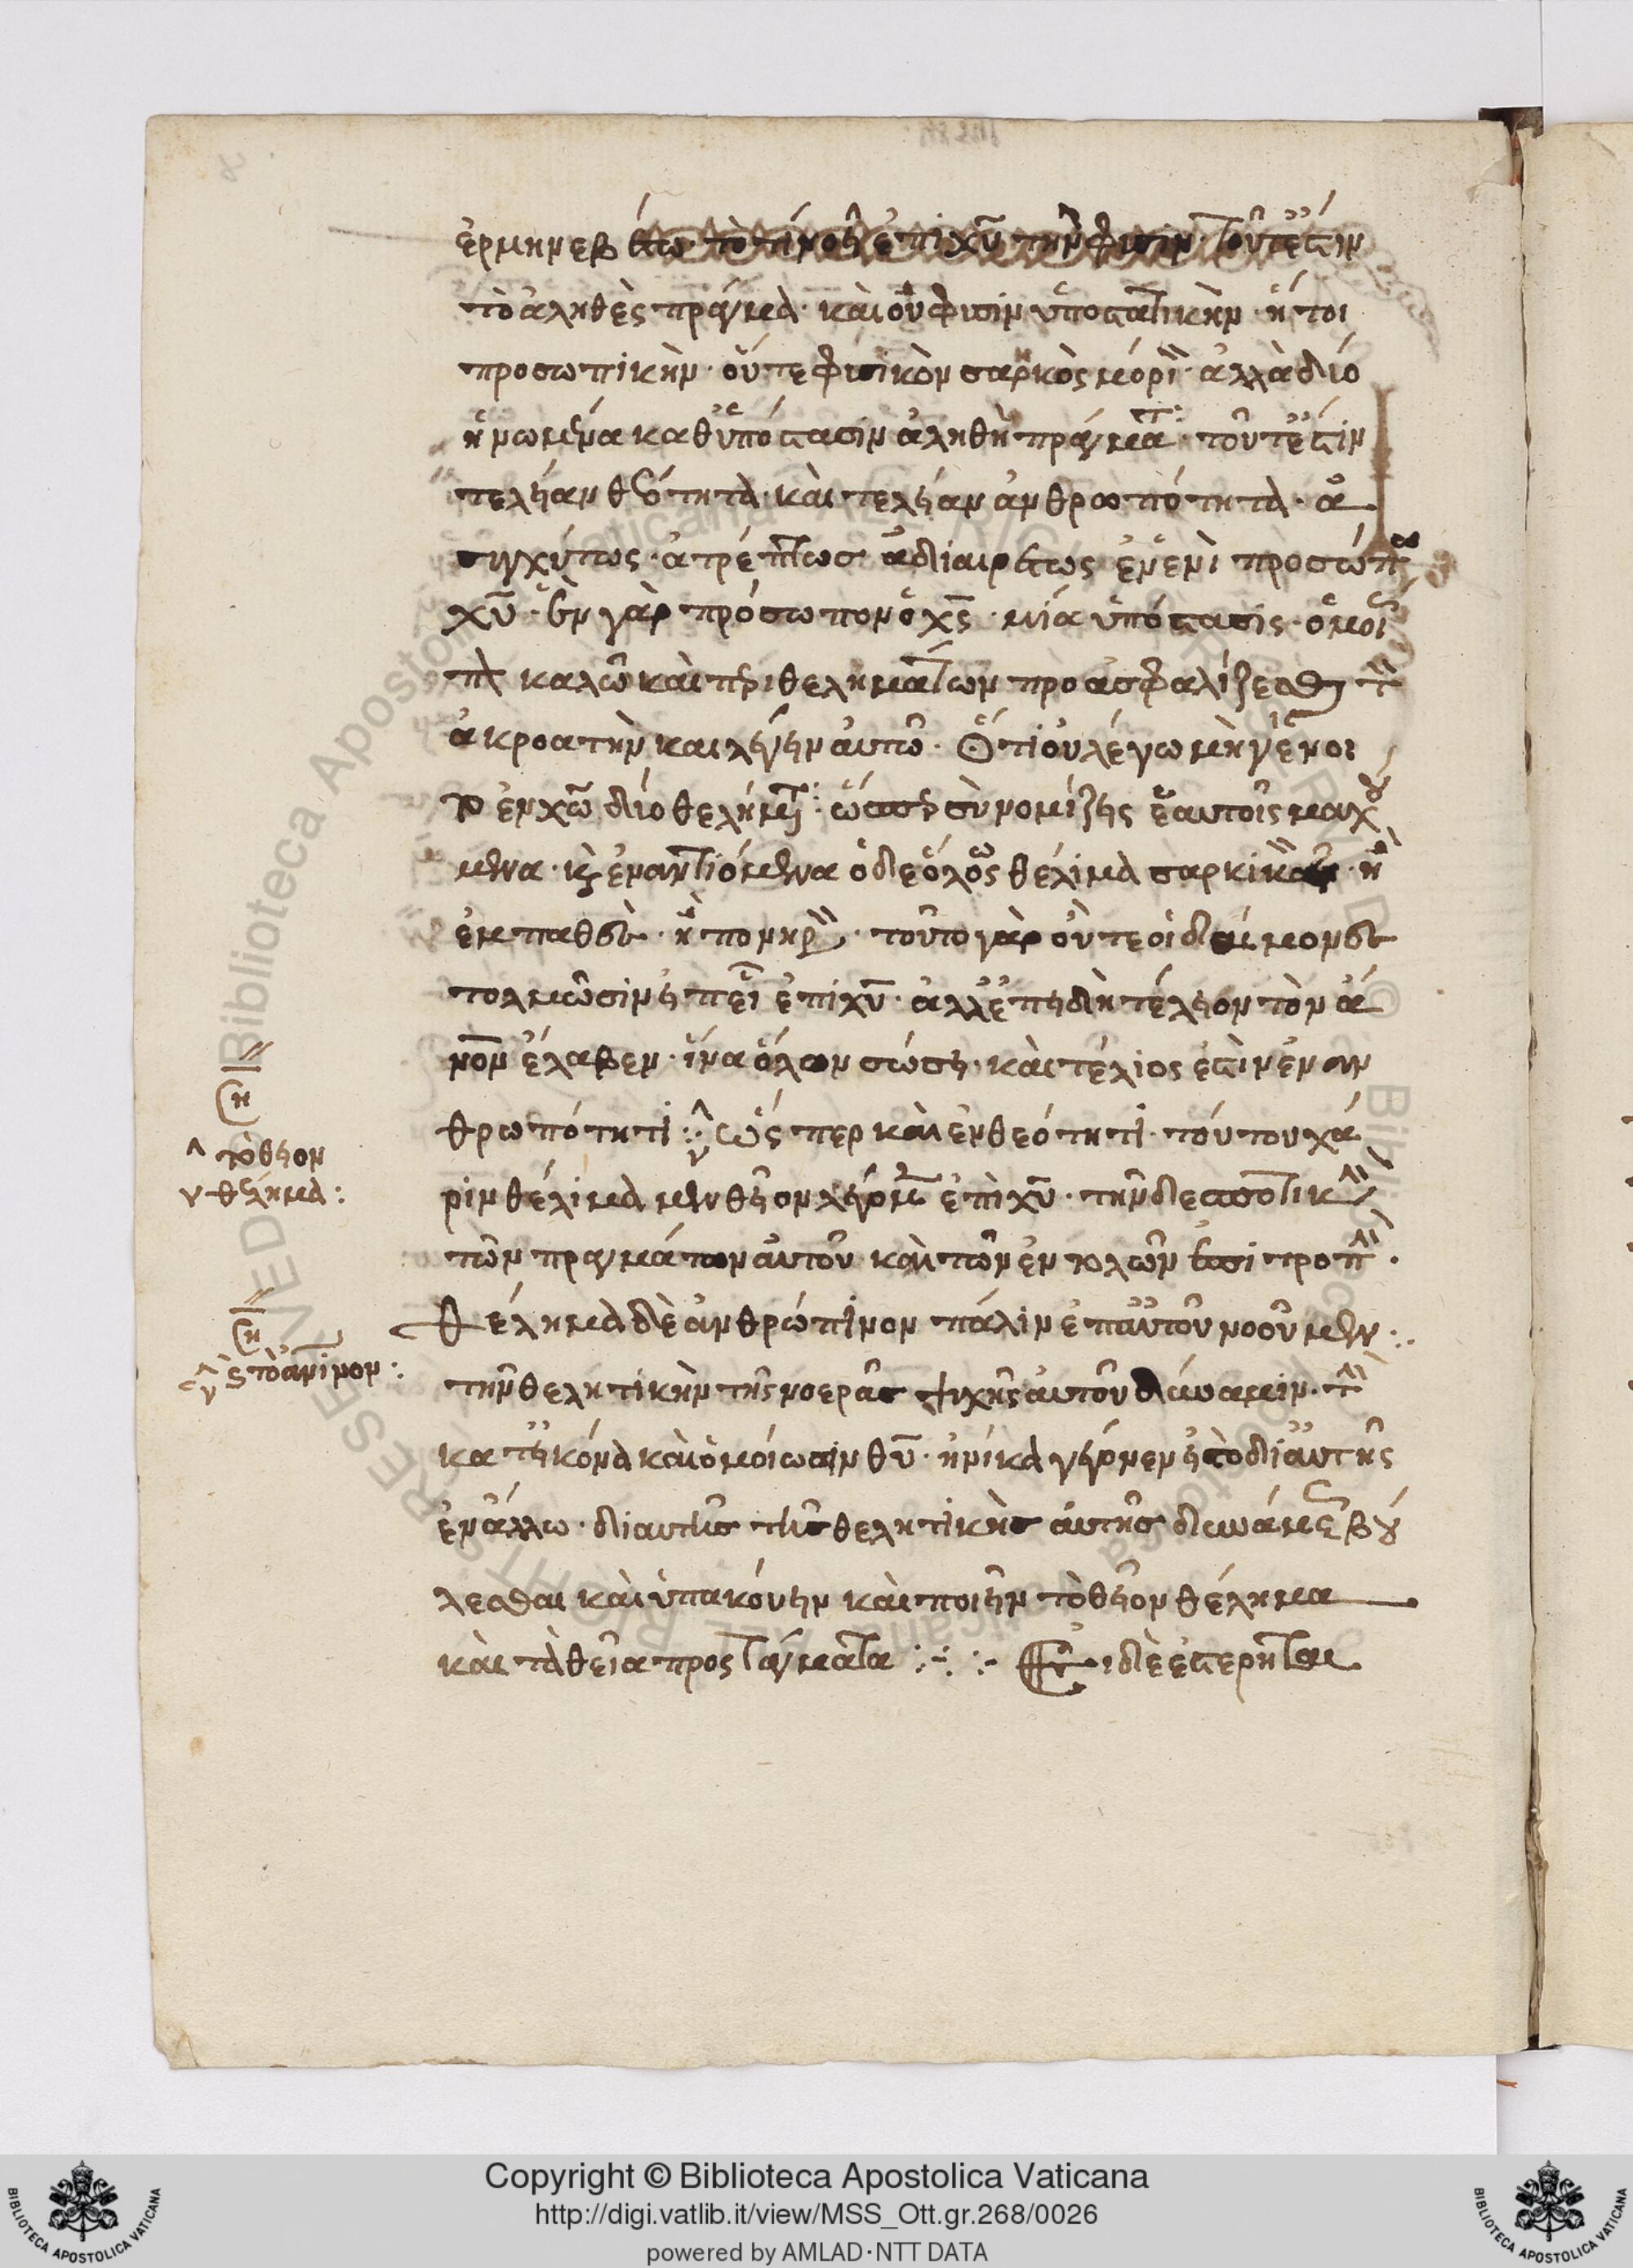 ἑρμηνευέτω τὸ τί νοεῖ ἐπὶ χῡ τὴν φύσιν· τουτέστιν
τὸ ἀληθὲς πράγμα· καὶ οὐ φύσιν ὑποστατικὴν· ἤτοι
προσωπικὴν· οὔτε φυσικὸν σαρκὸς μόρι· ἀλλὰ δύο
ἡνωμένα καθ' ὑπόστασιν ἀληθῆ πράγματα· τουτέστιν
τελείαν θεότητα· καὶ τελείαν ἀνθρωπότητα· ἀ
συγχύτως· ἀτρέπτως ἀδιαιρέτως ἐν ἑνὶ προσώπω
χῡ· ἓν γὰρ πρόσωπον ὁ χς̄· μία ὑπόστασις· ὁμοί
καλῶ καὶ περι θελημάτων προασφαλίζεσθαι τ
ἀκροατὴν και λέγειν αὐτῶ· Ὅτι οὐ λέγω μὴ γένοι
το ἐν χῶ δύο θελήματ: ὥσπερ σὺ νομίζης ἑαυτοῖς μαχό
μενα· κ ἐναντιόμενα ὁ δὲ ὅλως θέλιμα σαρκικὸν· ἢ
ἐμπαθὲς· ἢ πονηρὸν· τοῦτο γὰρ οὔτε οἱ δαίμονες
τολμῶσιν εἰπεῖ ἐπὶ χῡ· ἀλλ' ἐπειδὴ τέλειον τὸν ἄ
νον ἔλαβεν· ἵνα ὅλων σώσει· καὶ τέλιος ἐστὶν ἐν αν
θρωπότητι: ὥσπερ καὶ ἐν θεότητι· τούτου χά
ριν θέλιμα μεν θεῖον λέγομ ἐπὶ χῡ· τὴν δεσποτικ
τῶν πραγμάτων αὐτοῦ καὶ τῶν ἐντολῶν ἐπιτροπ·
Θέλημα δὲ ἀνθρώπινον πάλιν ἐπ' αὐτοῦ νοοῦμεν:
τὴν θελητικὴν τῆς νοερᾶς ψυχῆς αὐτοῦ δύναμιν· τ
κατ' εἰκόνα καὶ ὁμοίωσιν θῡ· ἡνίκα γέγονεν εἰς τὸ δι' αὐτῆς
ἐν ἄλλω· δι αυτῆς τῆς θελητικῆς αὐτῆς δυνάμεως βού
λεσθαι καὶ ὑπακούειν καὶ ποιεῖν τὸ θεῖον θέλημα
καὶ τὰ θεῖα προστάγματα Ει δὲ ἐστερηται
τὸ θειον
θέλημα:
τὸ ἀνινον:
Copyright © Biblioteca Apostolica Vaticana
http://digi.vatlib.it/view/MSS_Ott.gr.268/0026
powered by AMLAD·NTT DATA